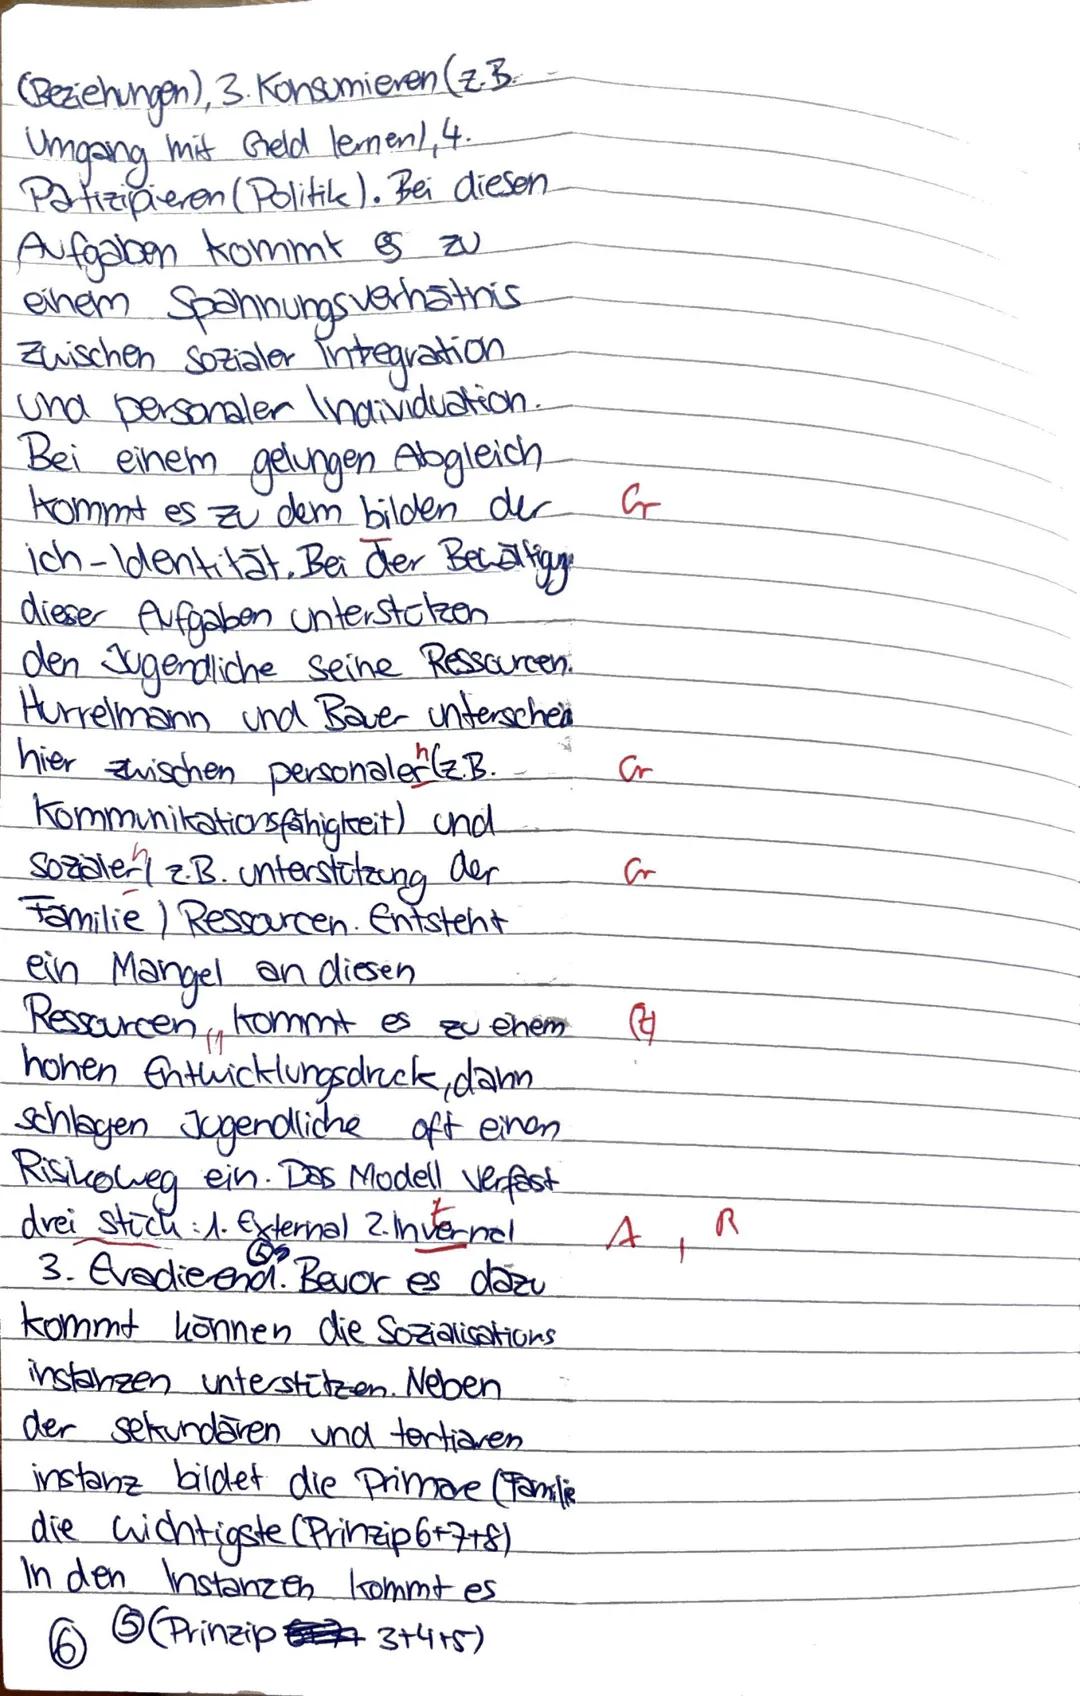 (Beziehungen), 3. Konsumieren (z.B.
Umgang mit Geld lernen), 4.
Patizipieren (Politik). Bei diesen
Aufgaben kommt es zu
einem Spannungsverhätnis
zwischen sozialer Integration
und personaler Individuation.
Bei einem gelungen Abgleich
kommt es zu dem bilden der Gr
ich-Identität. Bei der Bewältigung
dieser Aufgaben unterstützen
den Jugendliche seine Ressourcen.
Hurrelmann und Bauer unterscheid
hier zwischen personaler n (z.B. Gr
Kommunikationsfähigkeit) und
sozialer n (z.B. unterstützung der Gr
Familie) Ressourcen. Entsteht
ein Mangel an diesen
Ressourcen, kommt es zu einem (Z)
hohen Entwicklungsdruck, dann
schlagen Jugendliche oft einen
Risikoweg ein. Das Modell verfast
drei stück: 1. External 2. Invernal t A, R
3. Evadierend. ⑤ Bevor es dazu
kommt können die Sozialisations
instanzen unterstützen. Neben
der sekundären und tertiären
instanz bildet die Primäre (Familie
die wichtigste (Prinzip 6+7+8)
In den Instanzen kommt es
⑥ ⑤ (Prinzip 3+4+5)